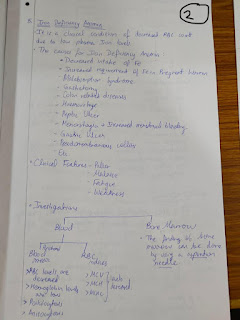 2
Iron Deficiency Anemia
It is a clinical condition of decreased RBC count
due to low plasma Iron levels.
• The causes for Iron Deficiency Anemia
• Decreased intake of Fe
• Increased requirement of Fe in Pregnant women
Malabsorption Syndrome
- Gastrectomy
- Colon related diseases
- Hemorrhage
- Peptic Ulcer
- Hemorrhage → Increased menstrual bleeding
- Gastric Ulcer
- colitis
Etc
• Clinical Features - Pallor
- Malaise
- Fatigue
- Weakness
• Investigations
Blood
Bone Marrow
Blood smear
RBC indices
• The testing of bone
marrow can be done
by using a aspiration
needle.
> RBC levels are
decreased
> Hemoglobin levels
are low
> Poikilocytosis
> Anisocytosis
> MCV
> MCH
> MCHC